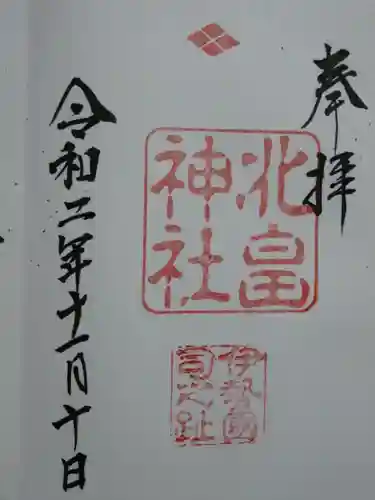 奉拝
北畠
神社
伊勢國
司之趾
令和二年十一月十日